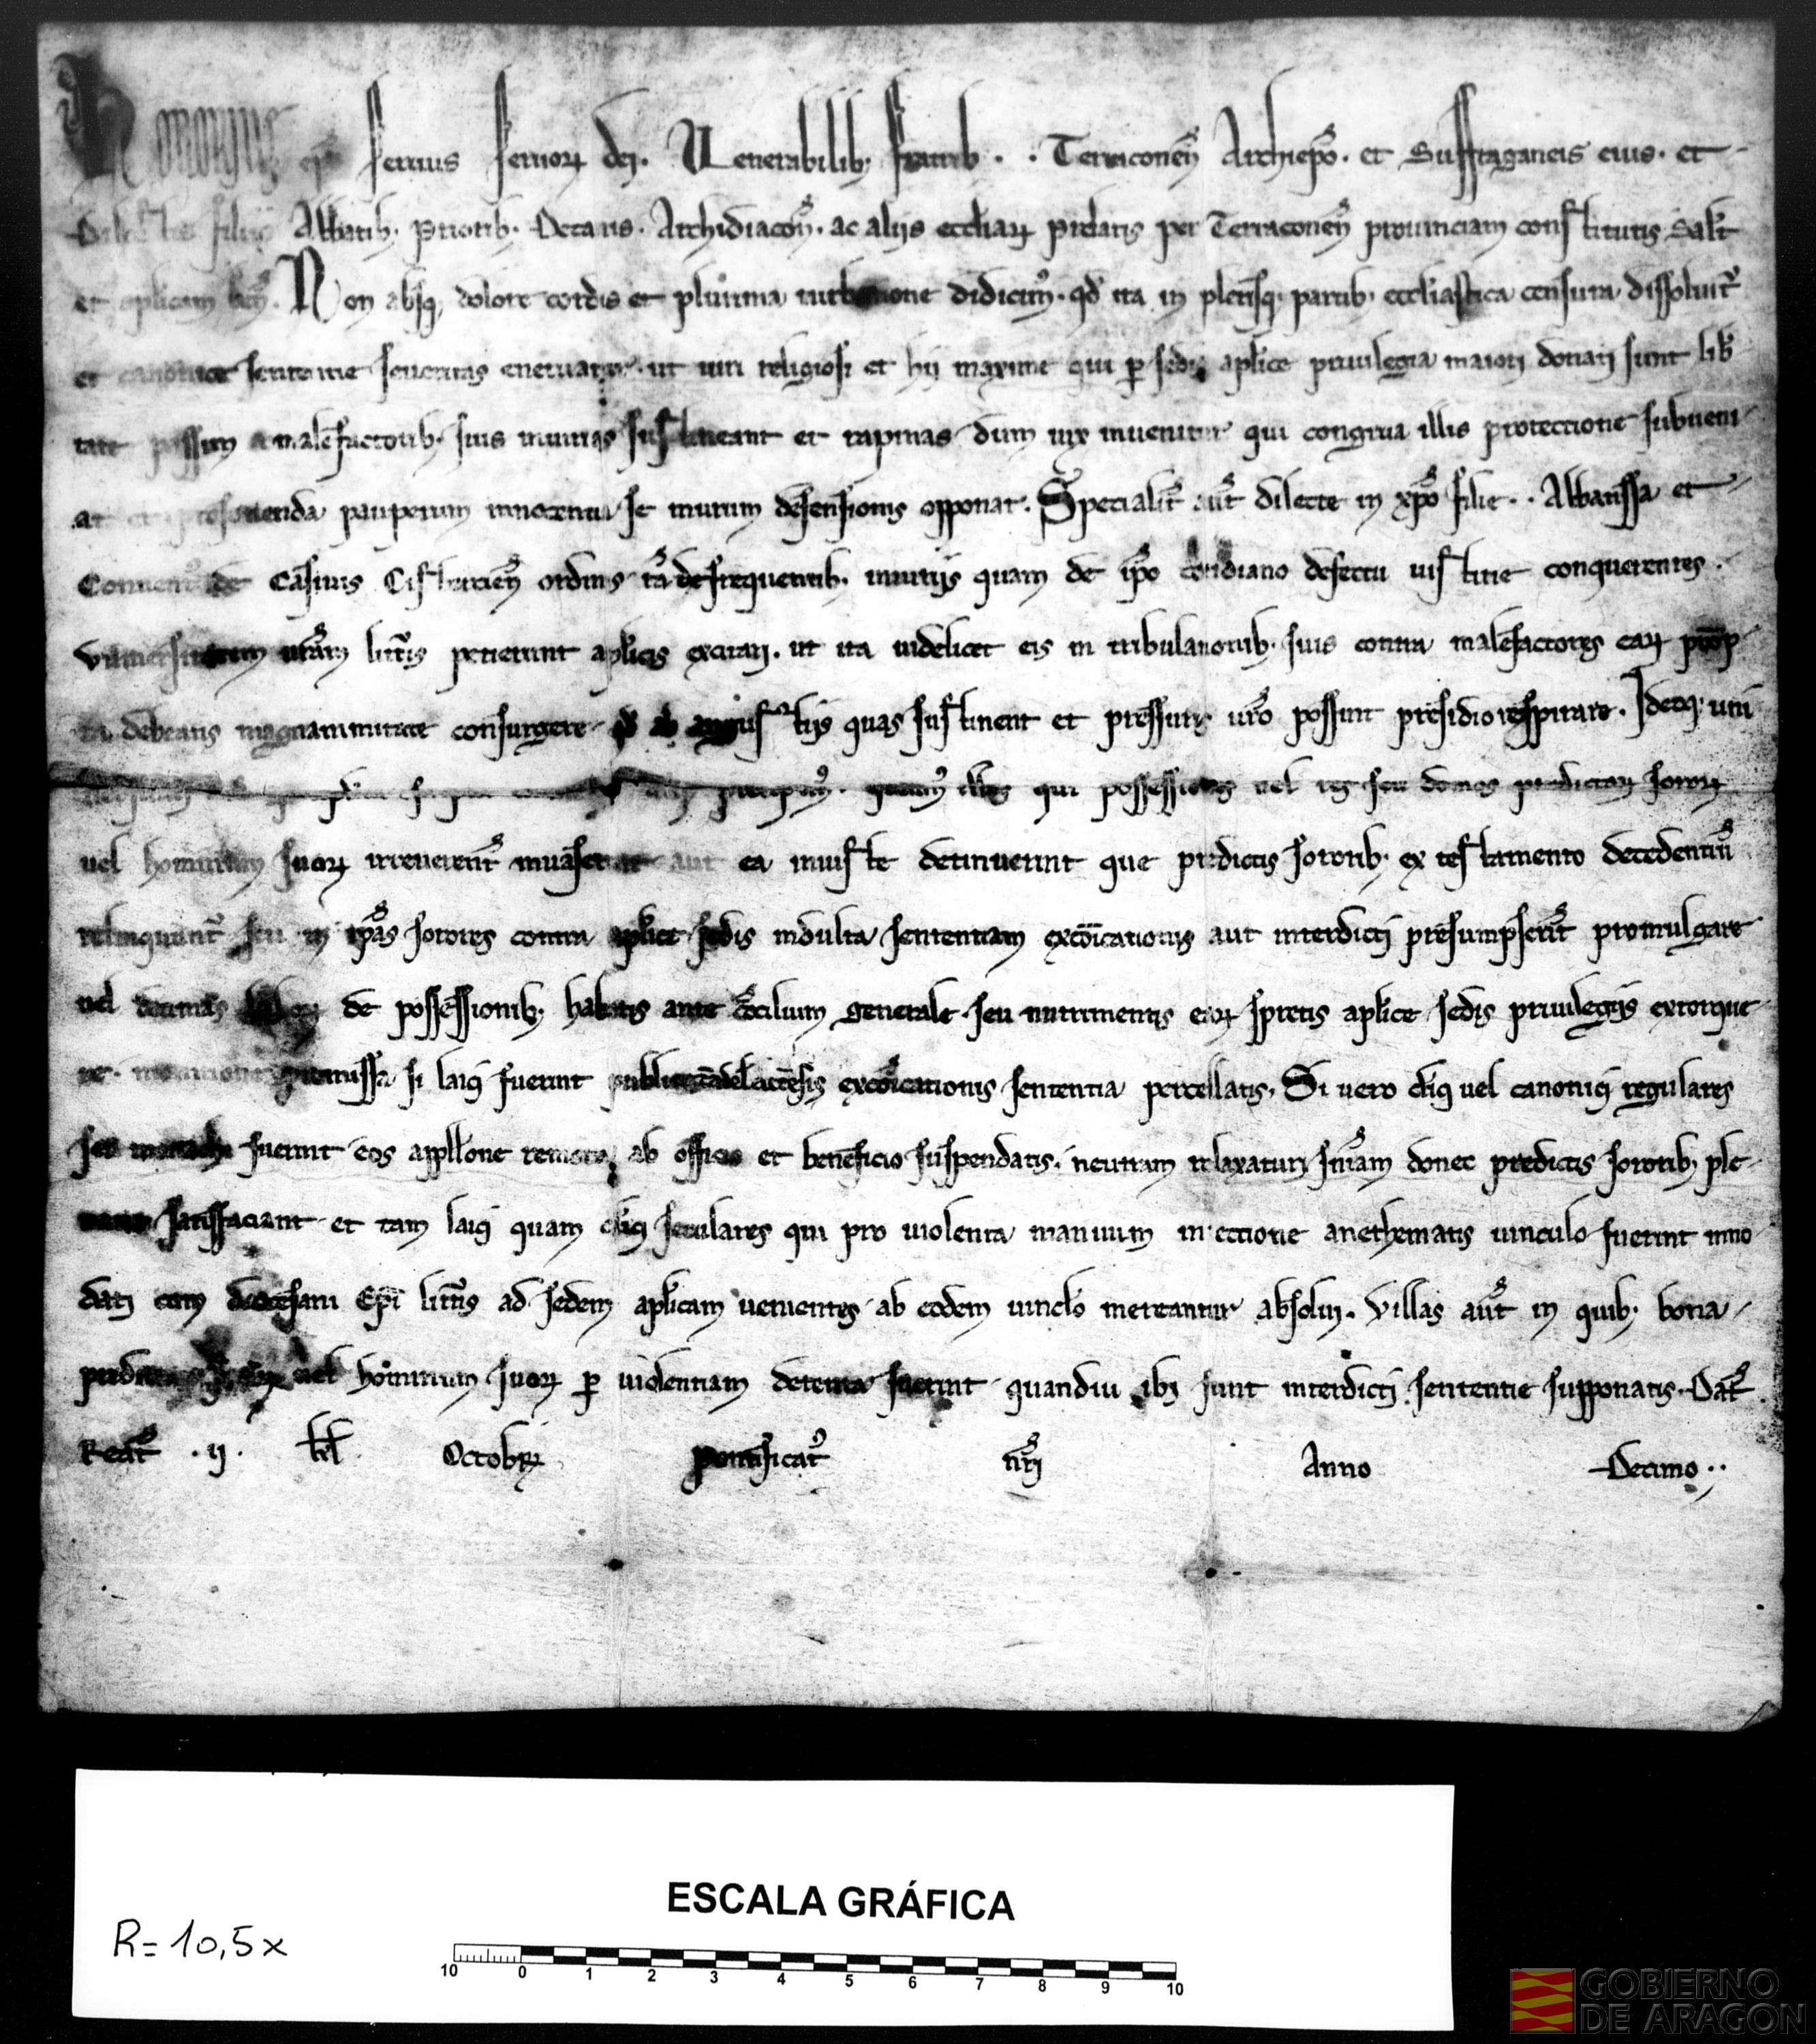 Honorius ep̄s seruus seruoꝝ dei. Venerabilib; fratrib; . . Terraconen̄ Archiep̄o. et Suffraganeis eius. et
Dilectis filijs Abbatib; Priorib; Decanis. Archidiacon̄. ac aliis eccliaꝝ prelatis per Terraconen̄ prouinciam constitutis Salt̄
et aplicam ben̄. Non absq; dolore cordis et plurima turbatione didicim᾿. qd̄ ita in pleriſq; partib; ecclesiastica censura dissoluit᾿
et canonice sententie seueritas eneruatur. ut uiri religiosi et hij maxime qui ꝑ sedis aplice priuilegia maiori donati sunt lib̄
tate passim a malefactorib; suis iniurias sustineant et rapinas dum uix inuenitur qui congrua illis protectione subueni
at et pro fouenda pauperum innocentia se murum defensionis opponat. Specialit᾿ aut̄ dilecte in xp̄o filie . . Abbatissa et
Conuent᾿ de Casuis Cistercien̄ ordinis tā de frequentib; iniurijs quam de ip̄o cotidiano defectu iustitie conquerentes.
Vniuersitatem uram litt̄is petierunt aplicis excitari. ut ita uidelicet eis in tribulationib; suis contra malefactores eaꝝ prōp
ta debeatis magnanimitate consurgere qd̄ ab angustijs quas sustinent et pressuris uro possint presidio respirare. Ideoq; uni
precipim᾿. quatin᾿ illos qui possessiones uel res seu domos predictaꝝ soroꝝ
uel hominum suoꝝ irreuerent᾿ inuaserint aut ea iniuste detinuerint que predictis sororib; ex testamento decedentiū
relinquunt᾿ seu in ip̄as sorores contra aplice sedis indulta sententiam excōicationis aut interdicti presumpserint promulgare
uel decimas laboꝝ de possessionib; habitis ante cōcilium generale seu nutrimentis eaꝝ spretis aplice sedis priuilegijs extorque
re. monitione premissa si laici fuerint publice candelis accensis excōicationis sententia percellatis. Si uero clici uel canonici regulares
seu monachi fuerint eos appllone remota ab officio et beneficio suspendatis. neutram relaxaturi sniam donec predictis sororib; ple
narie satisfaciant et tam laici quam clici seculares qui pro uiolenta manuum iniectione anathematis uinculo fuerint inno
dati cum diocesani Ep̄i litt̄is ad sedem aplicam uenientes ab eodem uinclo mereantur absolui. Villas aut̄ in quib; bona
predictaꝝ soroꝝ uel hominum suoꝝ ꝑ uiolentiam detenta fuerint quandiu ibi sunt interdicti sententie supponatis. Dat̄
Reat̄ . ij . kl Octobꝝ Pontificat᾿ nr̄i Anno Decimo . .
ESCALA GRÁFICA
R= 10,5x
10 0 1 2 3 4 5 6 7 8 9 10
GOBIERNO
DE ARAGON